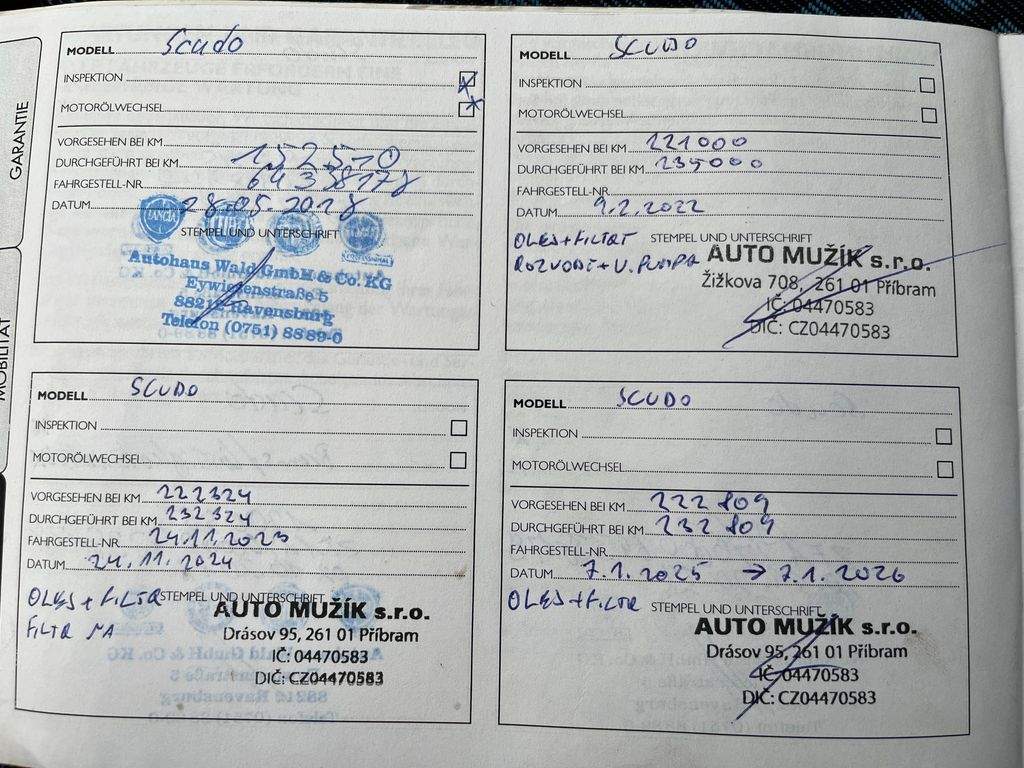 GARANTIE
MOBILITÄT
MODELL Scudo
INSPEKTION
MOTORÖLWECHSEL
VORGESEHEN BEI KM
DURCHGEFÜHRT BEI KM 152510
FAHRGESTELL-NR.
DATUM 28.05.2018
STEMPEL UND UNTERSCHRIFT
LANCIA
PROFESSIONAL
Autohaus Wald GmbH & Co. KG
Eywiesenstraße 5
88212 Ravensburg
Telefon (0751) 8889-0
MODELL SCUDO
INSPEKTION
MOTORÖLWECHSEL
VORGESEHEN BEI KM 221000
DURCHGEFÜHRT BEI KM 235000
FAHRGESTELL-NR.
DATUM 9.2.2022
OLEJ + FILTR STEMPEL UND UNTERSCHRIFT
ROZVODY + V. PUMPA AUTO MUŽÍK s.r.o.
Žižkova 708, 261 01 Příbram
IČ: 04470583
DIČ: CZ04470583
MODELL SCUDO
INSPEKTION
MOTORÖLWECHSEL
VORGESEHEN BEI KM 222324
DURCHGEFÜHRT BEI KM 232324
FAHRGESTELL-NR. 24.11.2023
DATUM 24.11.2024
OLEJ + FILTR STEMPEL UND UNTERSCHRIFT
FILTR NA AUTO MUŽÍK s.r.o.
Drásov 95, 261 01 Příbram
IČ: 04470583
DIČ: CZ04470583
MODELL SCUDO
INSPEKTION
MOTORÖLWECHSEL
VORGESEHEN BEI KM 222809
DURCHGEFÜHRT BEI KM 232809
FAHRGESTELL-NR.
DATUM 7.1.2025 → 7.1.2026
OLEJ + FILTR STEMPEL UND UNTERSCHRIFT
AUTO MUŽÍK s.r.o.
Drásov 95, 261 01 Příbram
IČ: 04470583
DIČ: CZ04470583